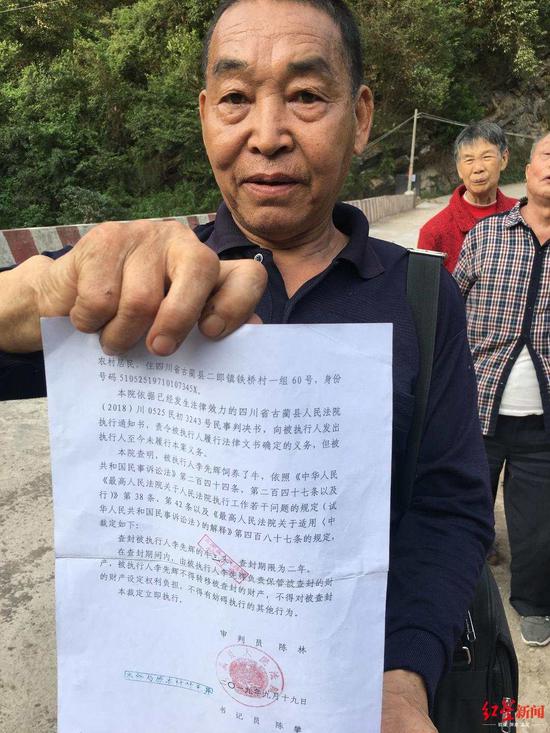 农村居民，住四川省古蔺县二郎镇铁桥村一组60号，身份
号码51052519710107345X。
本院依据已经发生法律效力的四川省古蔺县人民法院
（2018）川0525民初3243号民事判决书，向被执行人发出
执行通知书，责令被执行人履行法律文书确定的义务，但被
执行人至今未履行本案义务。
本院查明，被执行人李先辉饲养了牛，依照《中华人民
共和国民事诉讼法》第二百四十四条，第二百四十七条以及
《最高人民法院关于人民法院执行工作若干问题的规定（试
行）》第38条，第42条以及《最高人民法院关于适用〈中
华人民共和国民事诉讼法〉的解释》第四百八十七条的规定，
裁定如下：
查封被执行人李先辉的牛 查封期限为二年。
在查封期间内，由被执行人李先辉负责保管被查封的财
产，被执行人李先辉不得转移被查封的财产，不得对被查封
的财产设定权利负担，不得有妨碍执行的其他行为。
本裁定立即执行。
审判员 陈林
二〇一九年九月十九日
书记员 陈攀
红星新闻